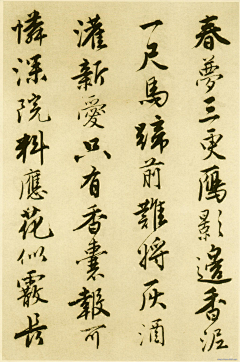 春夢三更鴈影邊香泥
一尺馬蹄前難將灰酒
灌新愛只有香囊報可
憐深院料應花似霰長